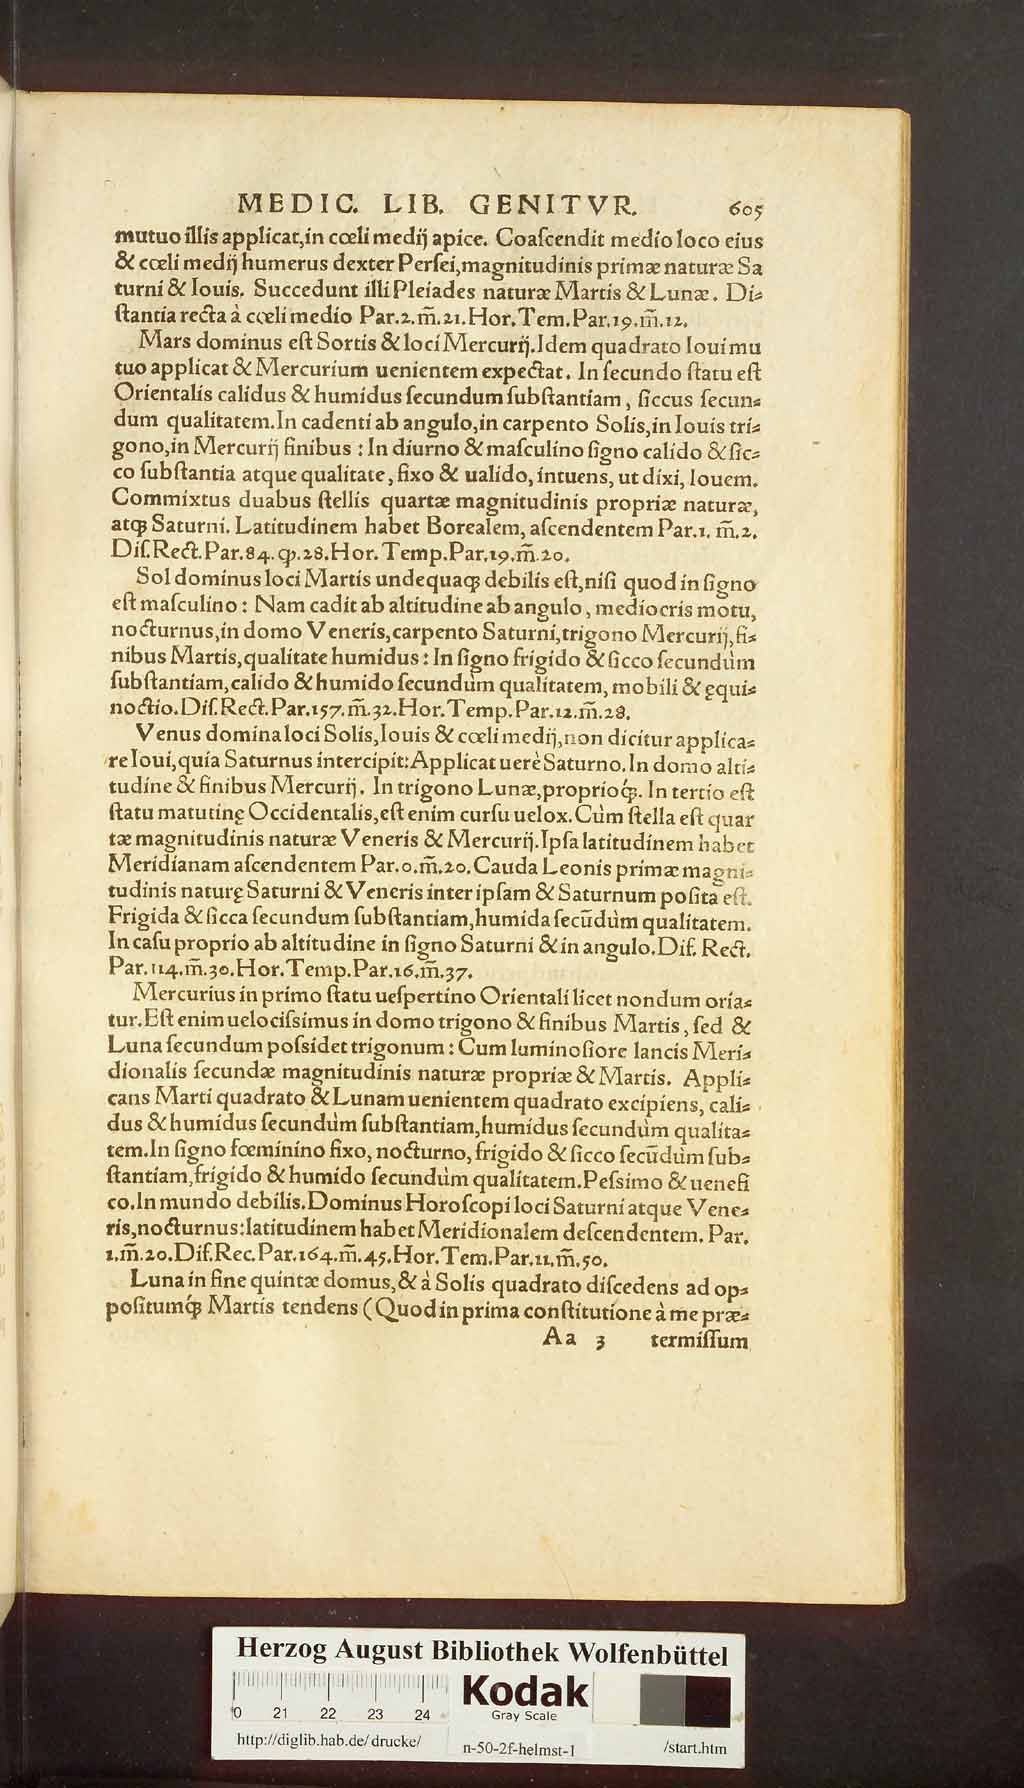 MEDIC. LIB. GENITVR. 605
mutuo illis applicat,in cœli medij apice. Coaſcendit medio loco eius
& cœli medij humerus dexter Perſei,magnitudinis primæ naturæ Sa
turni & Iouis. Succedunt illi Pleiades naturæ Martis & Lunæ. Di⸗
ſtantia recta à cœli medio Par.2.m̃.21.Hor.Tem.Par.19.m̃.12.
Mars dominus eſt Sortis & loci Mercurij.Idem quadrato Ioui mu
tuo applicat & Mercurium uenientem expectat. In ſecundo ſtatu eſt
Orientalis calidus & humidus ſecundum ſubſtantiam, ſiccus ſecun⸗
dum qualitatem.In cadenti ab angulo,in carpento Solis,in Iouis tri⸗
gono,in Mercurij finibus : In diurno & maſculino ſigno calido & ſic⸗
co ſubſtantia atque qualitate, fixo & ualido, intuens, ut dixi, Iouem.
Commixtus duabus ſtellis quartæ magnitudinis propriæ naturæ,
atqꝫ Saturni. Latitudinem habet Borealem, aſcendentem Par.1. m̃.2.
Diſ.Rect.Par.84.qꝫ.28.Hor. Temp.Par.19.m̃.20.
Sol dominus loci Martis undequaqꝫ debilis eſt,niſi quod in ſigno
eſt maſculino: Nam cadit ab altitudine ab angulo, mediocris motu,
nocturnus,in domo Veneris,carpento Saturni,trigono Mercurij,fi⸗
nibus Martis,qualitate humidus: In ſigno frigido & ſicco ſecundùm
ſubſtantiam,calido & humido ſecundùm qualitatem, mobili & ęqui⸗
noctio.Diſ.Rect.Par.157.m̃.32.Hor.Temp.Par.12.m̃.28.
Venus domina loci Solis,Iouis & cœli medij,non dicitur applica⸗
re Ioui,quia Saturnus intercipit:Applicat uerè Saturno.In domo alti⸗
tudine & finibus Mercurij. In trigono Lunæ,proprioq́ꝫ. In tertio eſt
ſtatu matutinę Occidentalis,eſt enim curſu uelox. Cùm ſtella eſt quar
tæ magnitudinis naturæ Veneris & Mercurij.Ipſa latitudinem habet
Meridianam aſcendentem Par.0.m̃.20.Cauda Leonis primæ magni⸗
tudinis naturę Saturni & Veneris inter ipſam & Saturnum poſita eſt.
Frigida & ſicca ſecundum ſubſtantiam,humida ſecũdùm qualitatem.
In caſu proprio ab altitudine in ſigno Saturni & in angulo.Diſ. Rect.
Par.114.m̃.30.Hor.Temp.Par.16.m̃.37.
Mercurius in primo ſtatu ueſpertino Orientali licet nondum oria⸗
tur.Eſt enim uelociſsimus in domo trigono & finibus Martis, ſed &
Luna ſecundum poſsidet trigonum: Cum luminoſiore lancis Meri⸗
dionalis ſecundæ magnitudinis naturæ propriæ & Martis. Appli⸗
cans Marti quadrato & Lunam uenientem quadrato excipiens, cali⸗
dus & humidus ſecundùm ſubſtantiam,humidus ſecundùm qualita⸗
tem.In ſigno fœminino fixo, nocturno, frigido & ſicco ſecũdùm ſub⸗
ſtantiam,frigido & humido ſecundùm qualitatem.Peſsimo & uenefi
co.In mundo debilis.Dominus Horoſcopi loci Saturni atque Vene⸗
ris,nocturnus:latitudinem habet Meridionalem deſcendentem. Par.
1.m̃.20.Diſ.Rec.Par.164.m̃.45.Hor.Tem.Par.11.m̃.50.
Luna in fine quintæ domus,& à Solis quadrato diſcedens ad op⸗
poſitumq́ꝫ Martis tendens (Quod in prima conſtitutione à me præ⸗
Aa 3 termiſſum
Herzog August Bibliothek Wolfenbüttel
0 21 22 23 24
Kodak
Gray Scale
http://diglib.hab.de/drucke/ n-50-2f-helmst-1 /start.htm